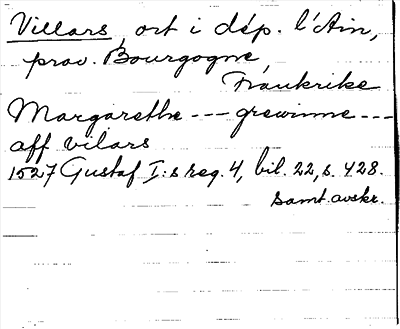 Villars, ort i dép. l'Ain,
prov. Bourgogne,
Frankrike
Margarethe --- grewinne ---
aff vilars
1527 Gustaf I:s reg. 4, bil. 22, s. 428.
samt. avskr.